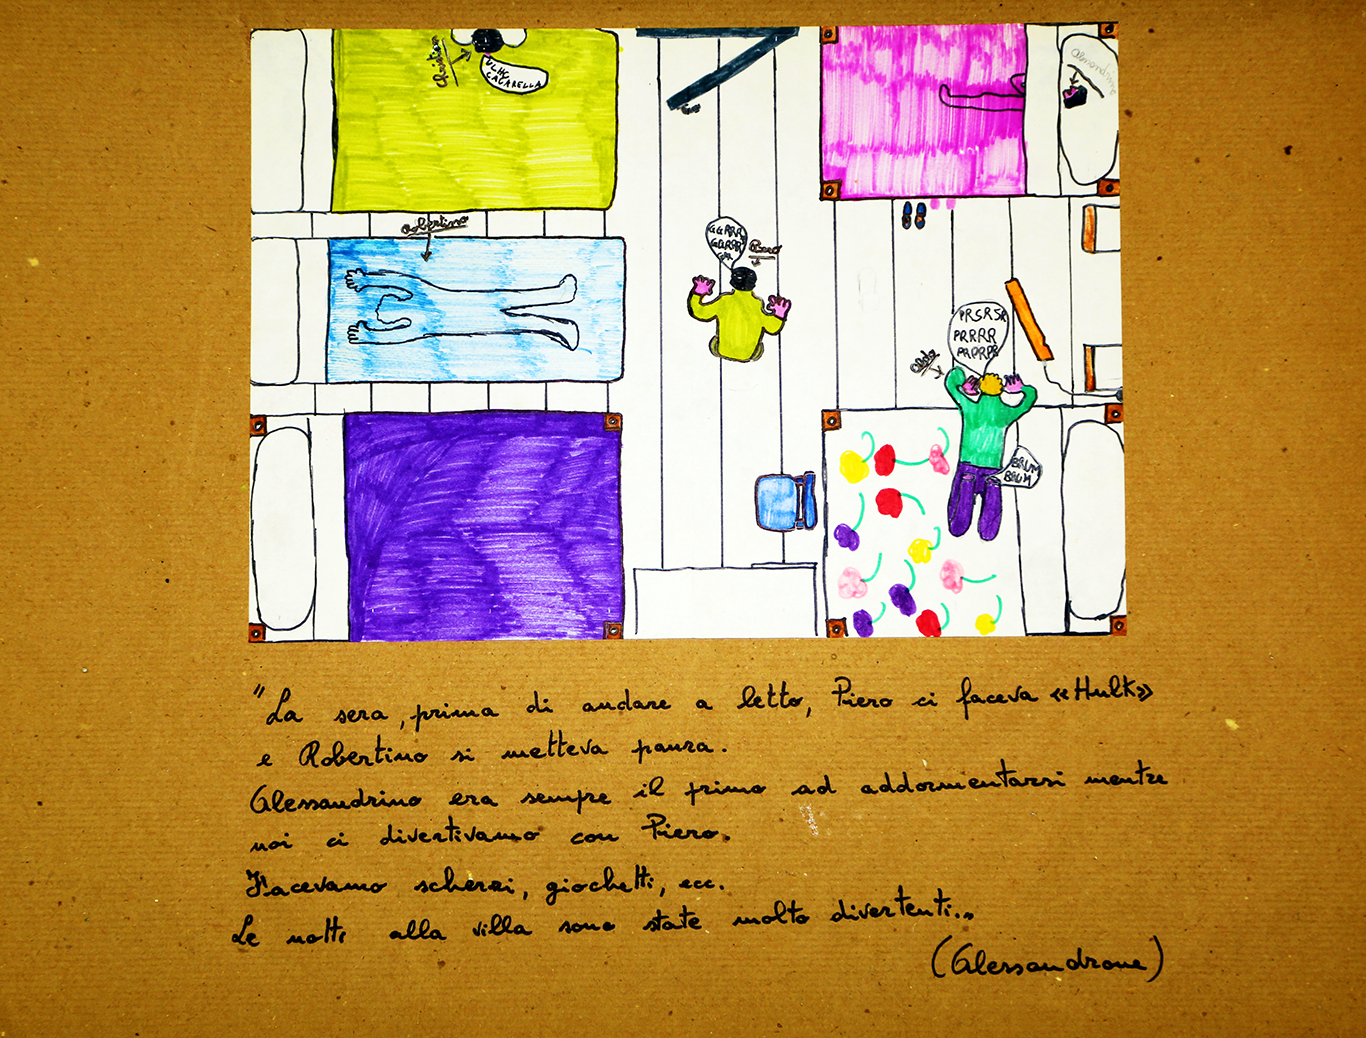 Christian
CACARELLA
Robertino
GGRRR
GGRRR
GRR
Piero
Alessandrino
PRSRSR
PRRRR
PRPRPR
Aldo
BRUM
BRUM
"La sera, prima di andare a letto, Piero ci faceva «Hulk»
e Robertino si metteva paura.
Alessandrino era sempre il primo ad addormentarsi mentre
noi ci divertivamo con Piero.
Facevamo scherzi, giochetti, ecc.
Le notti alla villa sono state molto divertenti...
(Alessandrone)